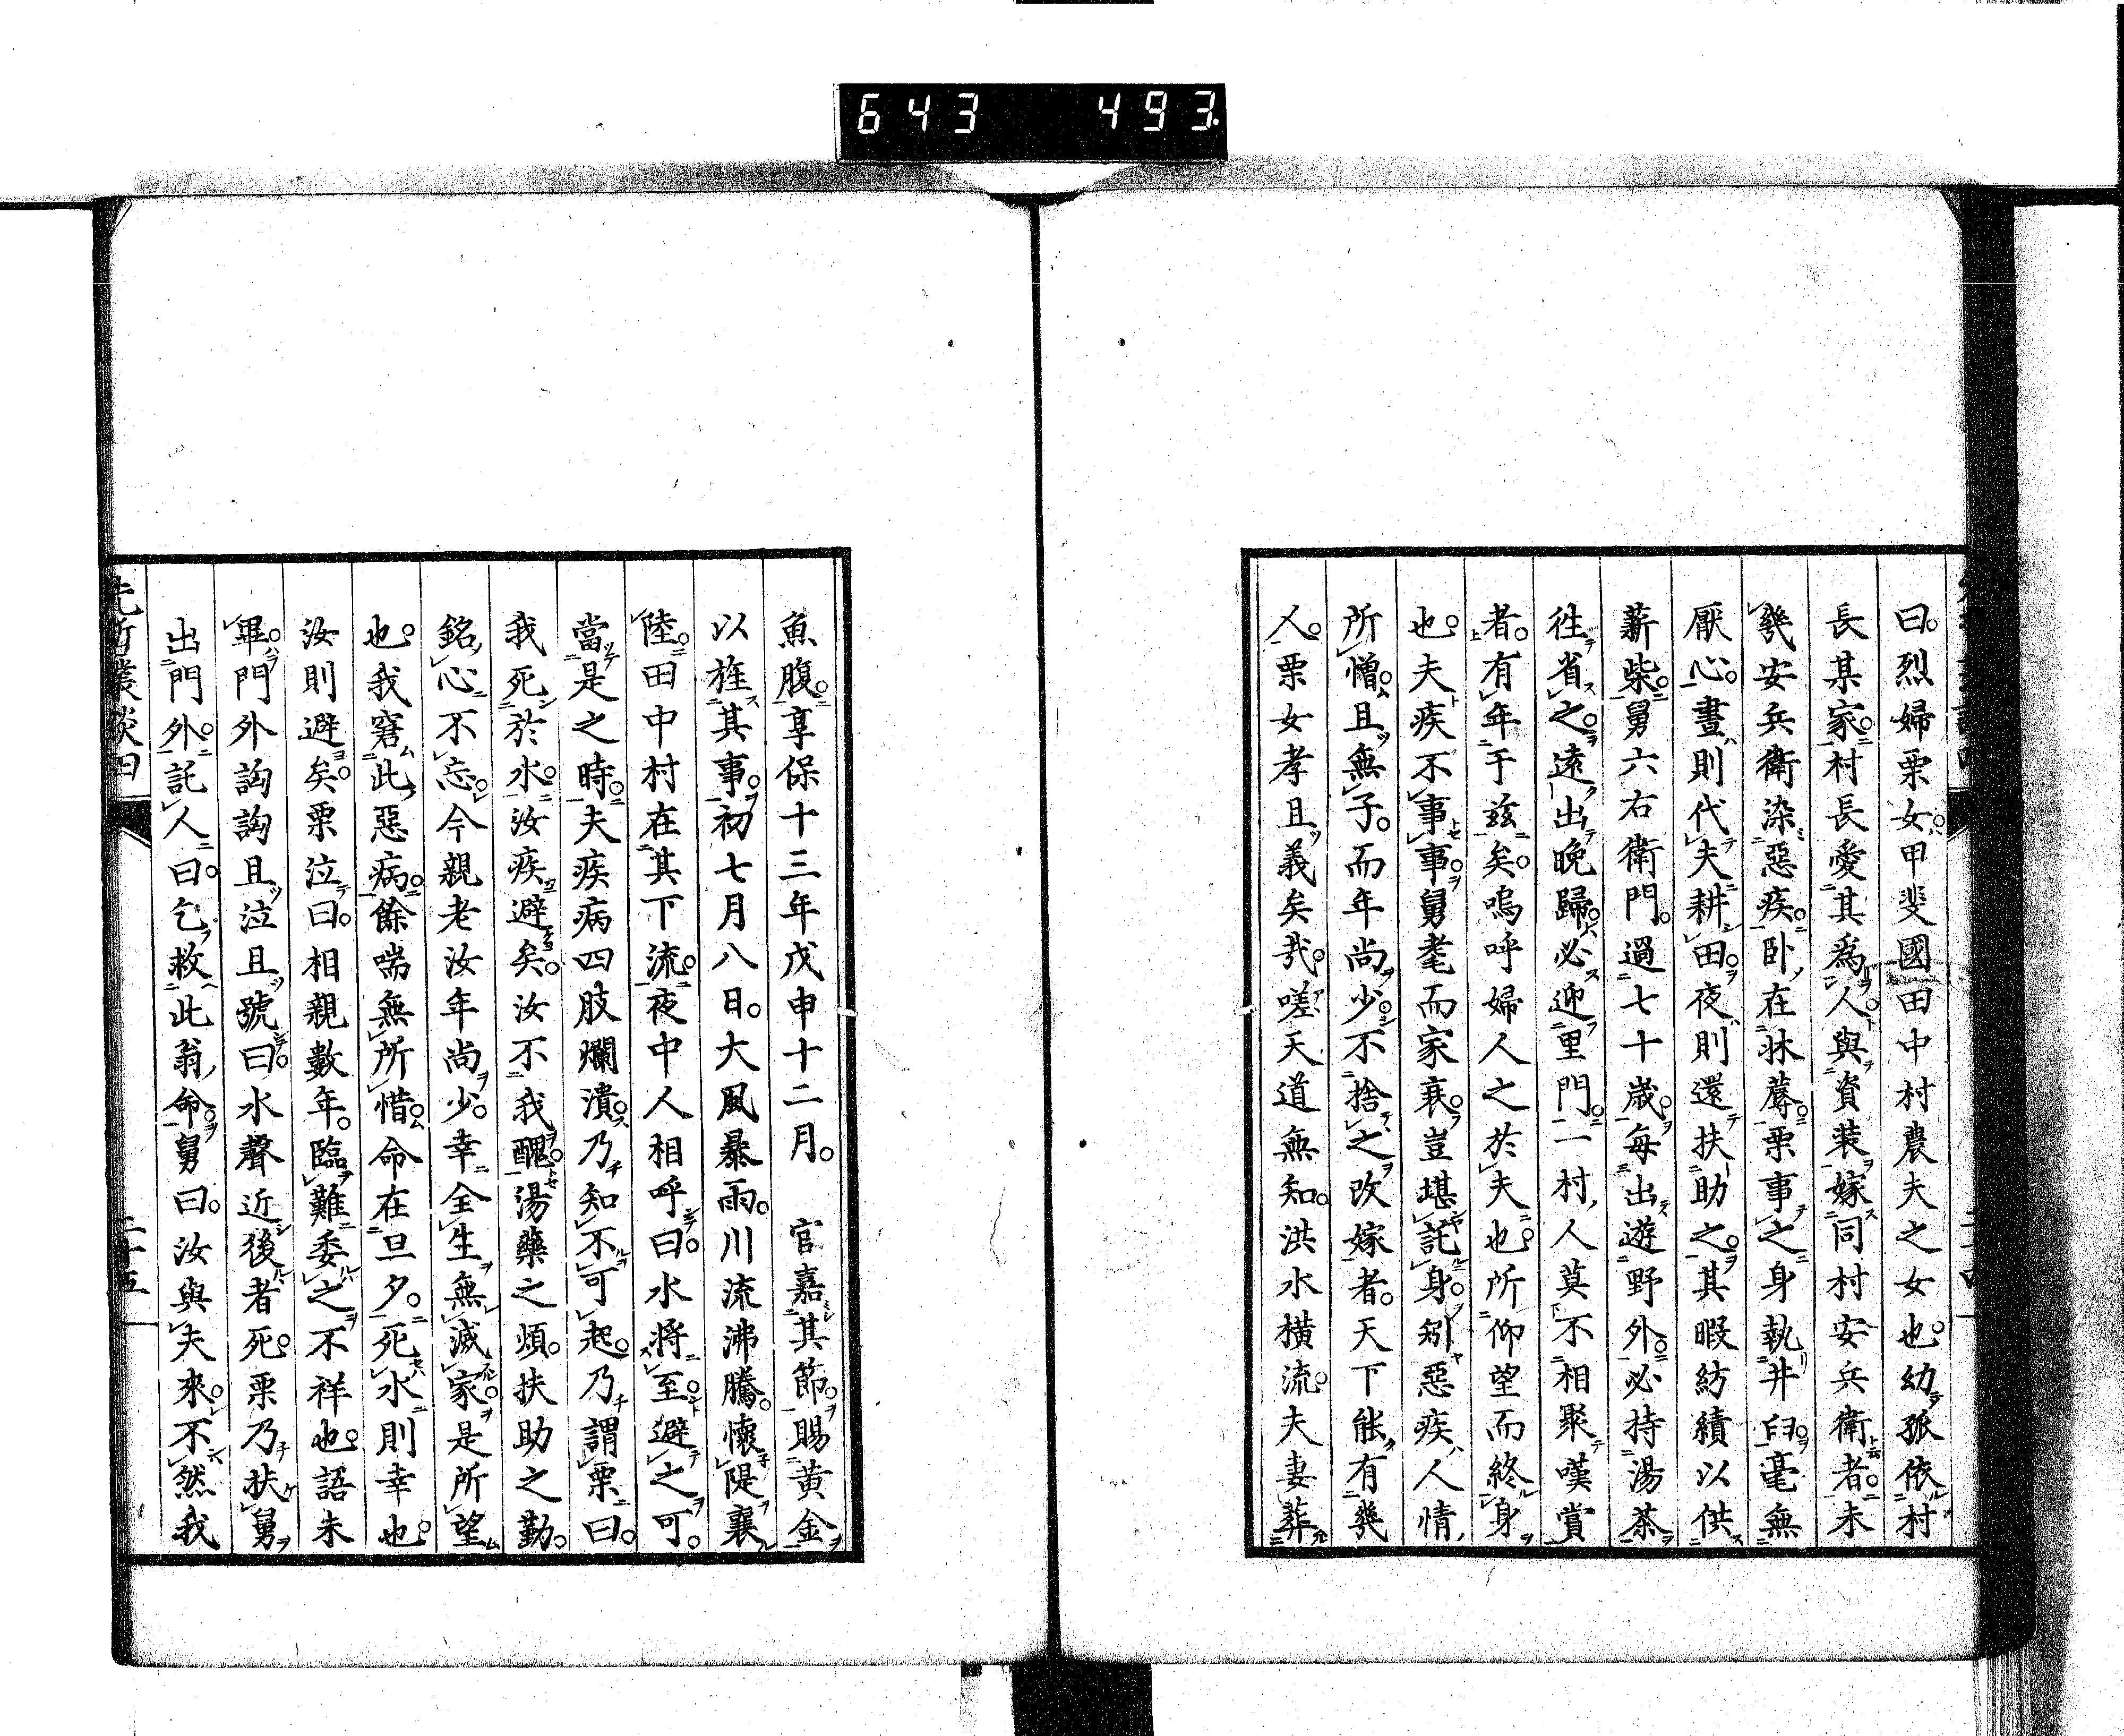 643 493.
曰。烈婦栗女。甲斐國田中村農夫之女也。幼孤依村
長某家。村長愛其爲人。與資裝嫁同村安兵衛者。未
幾安兵衛染惡疾。臥在牀蓐。栗事之身執井臼。毫無
厭心。晝則代夫耕田。夜則還扶助之。其暇紡績以供
薪柴。舅六右衛門。過七十歲。每出遊野外。必持湯茶
往省之。遠出晚歸。必迎里門。一村人莫不相聚嘆賞
者。有年于玆矣。嗚呼婦人之於夫也。所仰望而終身
也。夫疾不事事。舅耄而家衰。豈堪託身。矧惡疾人情
所憎。且無子。而年尚少。不捨之改嫁者。天下能有幾
人。栗女孝且義矣哉。嗟天道無知。洪水橫流。夫妻葬
魚腹。享保十三年戊申十二月。官嘉其節。賜黃金
以旌其事。初七月八日。大風暴雨。川流沸騰。懷隄襄
陸。田中村在其下流。夜中人相呼曰。水將至。避之可。
當是之時。夫疾病四肢爛潰。乃知不可起。乃謂栗曰。
我死於水。汝疾避矣。汝不我醜。湯藥之煩。扶助之勤。
銘心不忘。今親老汝年尚少。幸全生無滅家。是所望
也。我窘此惡病。餘喘無所惜。命在旦夕。死水則幸也。
汝則避矣。栗泣曰。相親數年。臨難委之不祥也。語未
畢。門外訩訩且泣且號曰。水聲近後者死。栗乃扶舅
出門外。託人曰。乞救此翁命。舅曰。汝與夫來。不然我
先哲叢談四
二十五